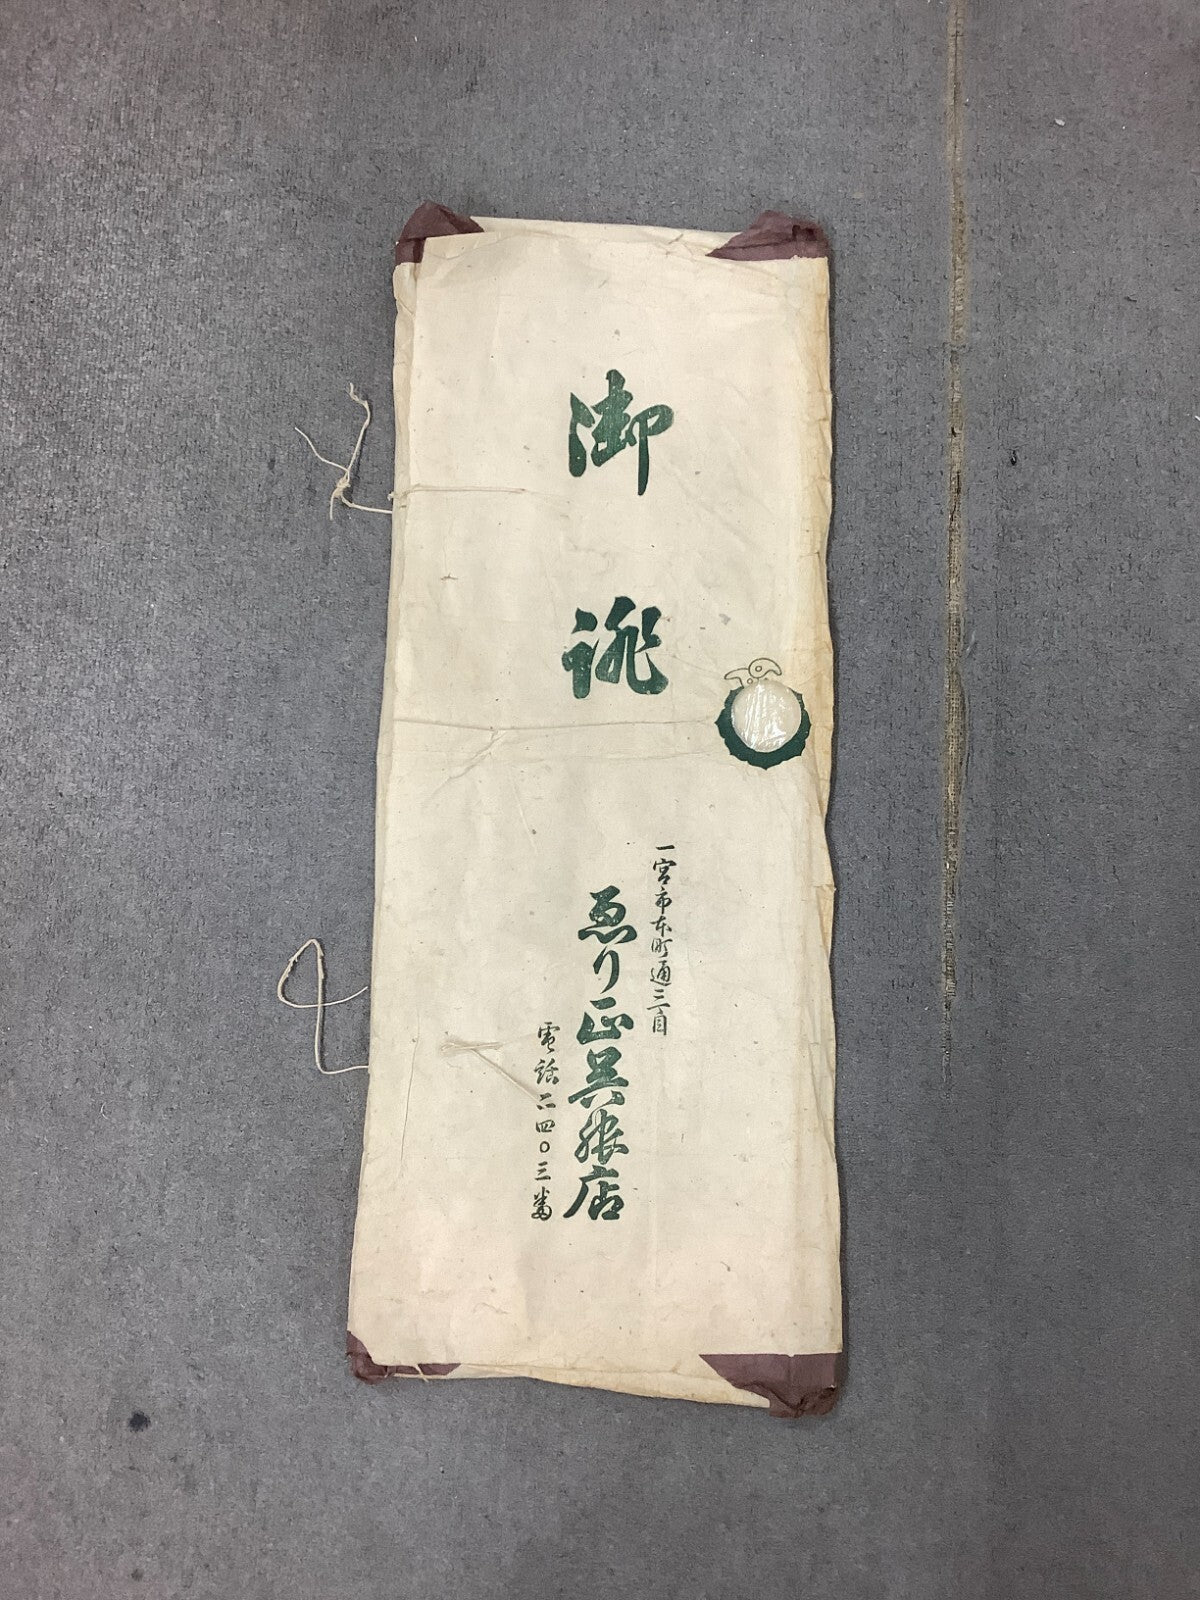 御誂
一宮市本町通三目
ゑり正呉服店
電話二四〇三番